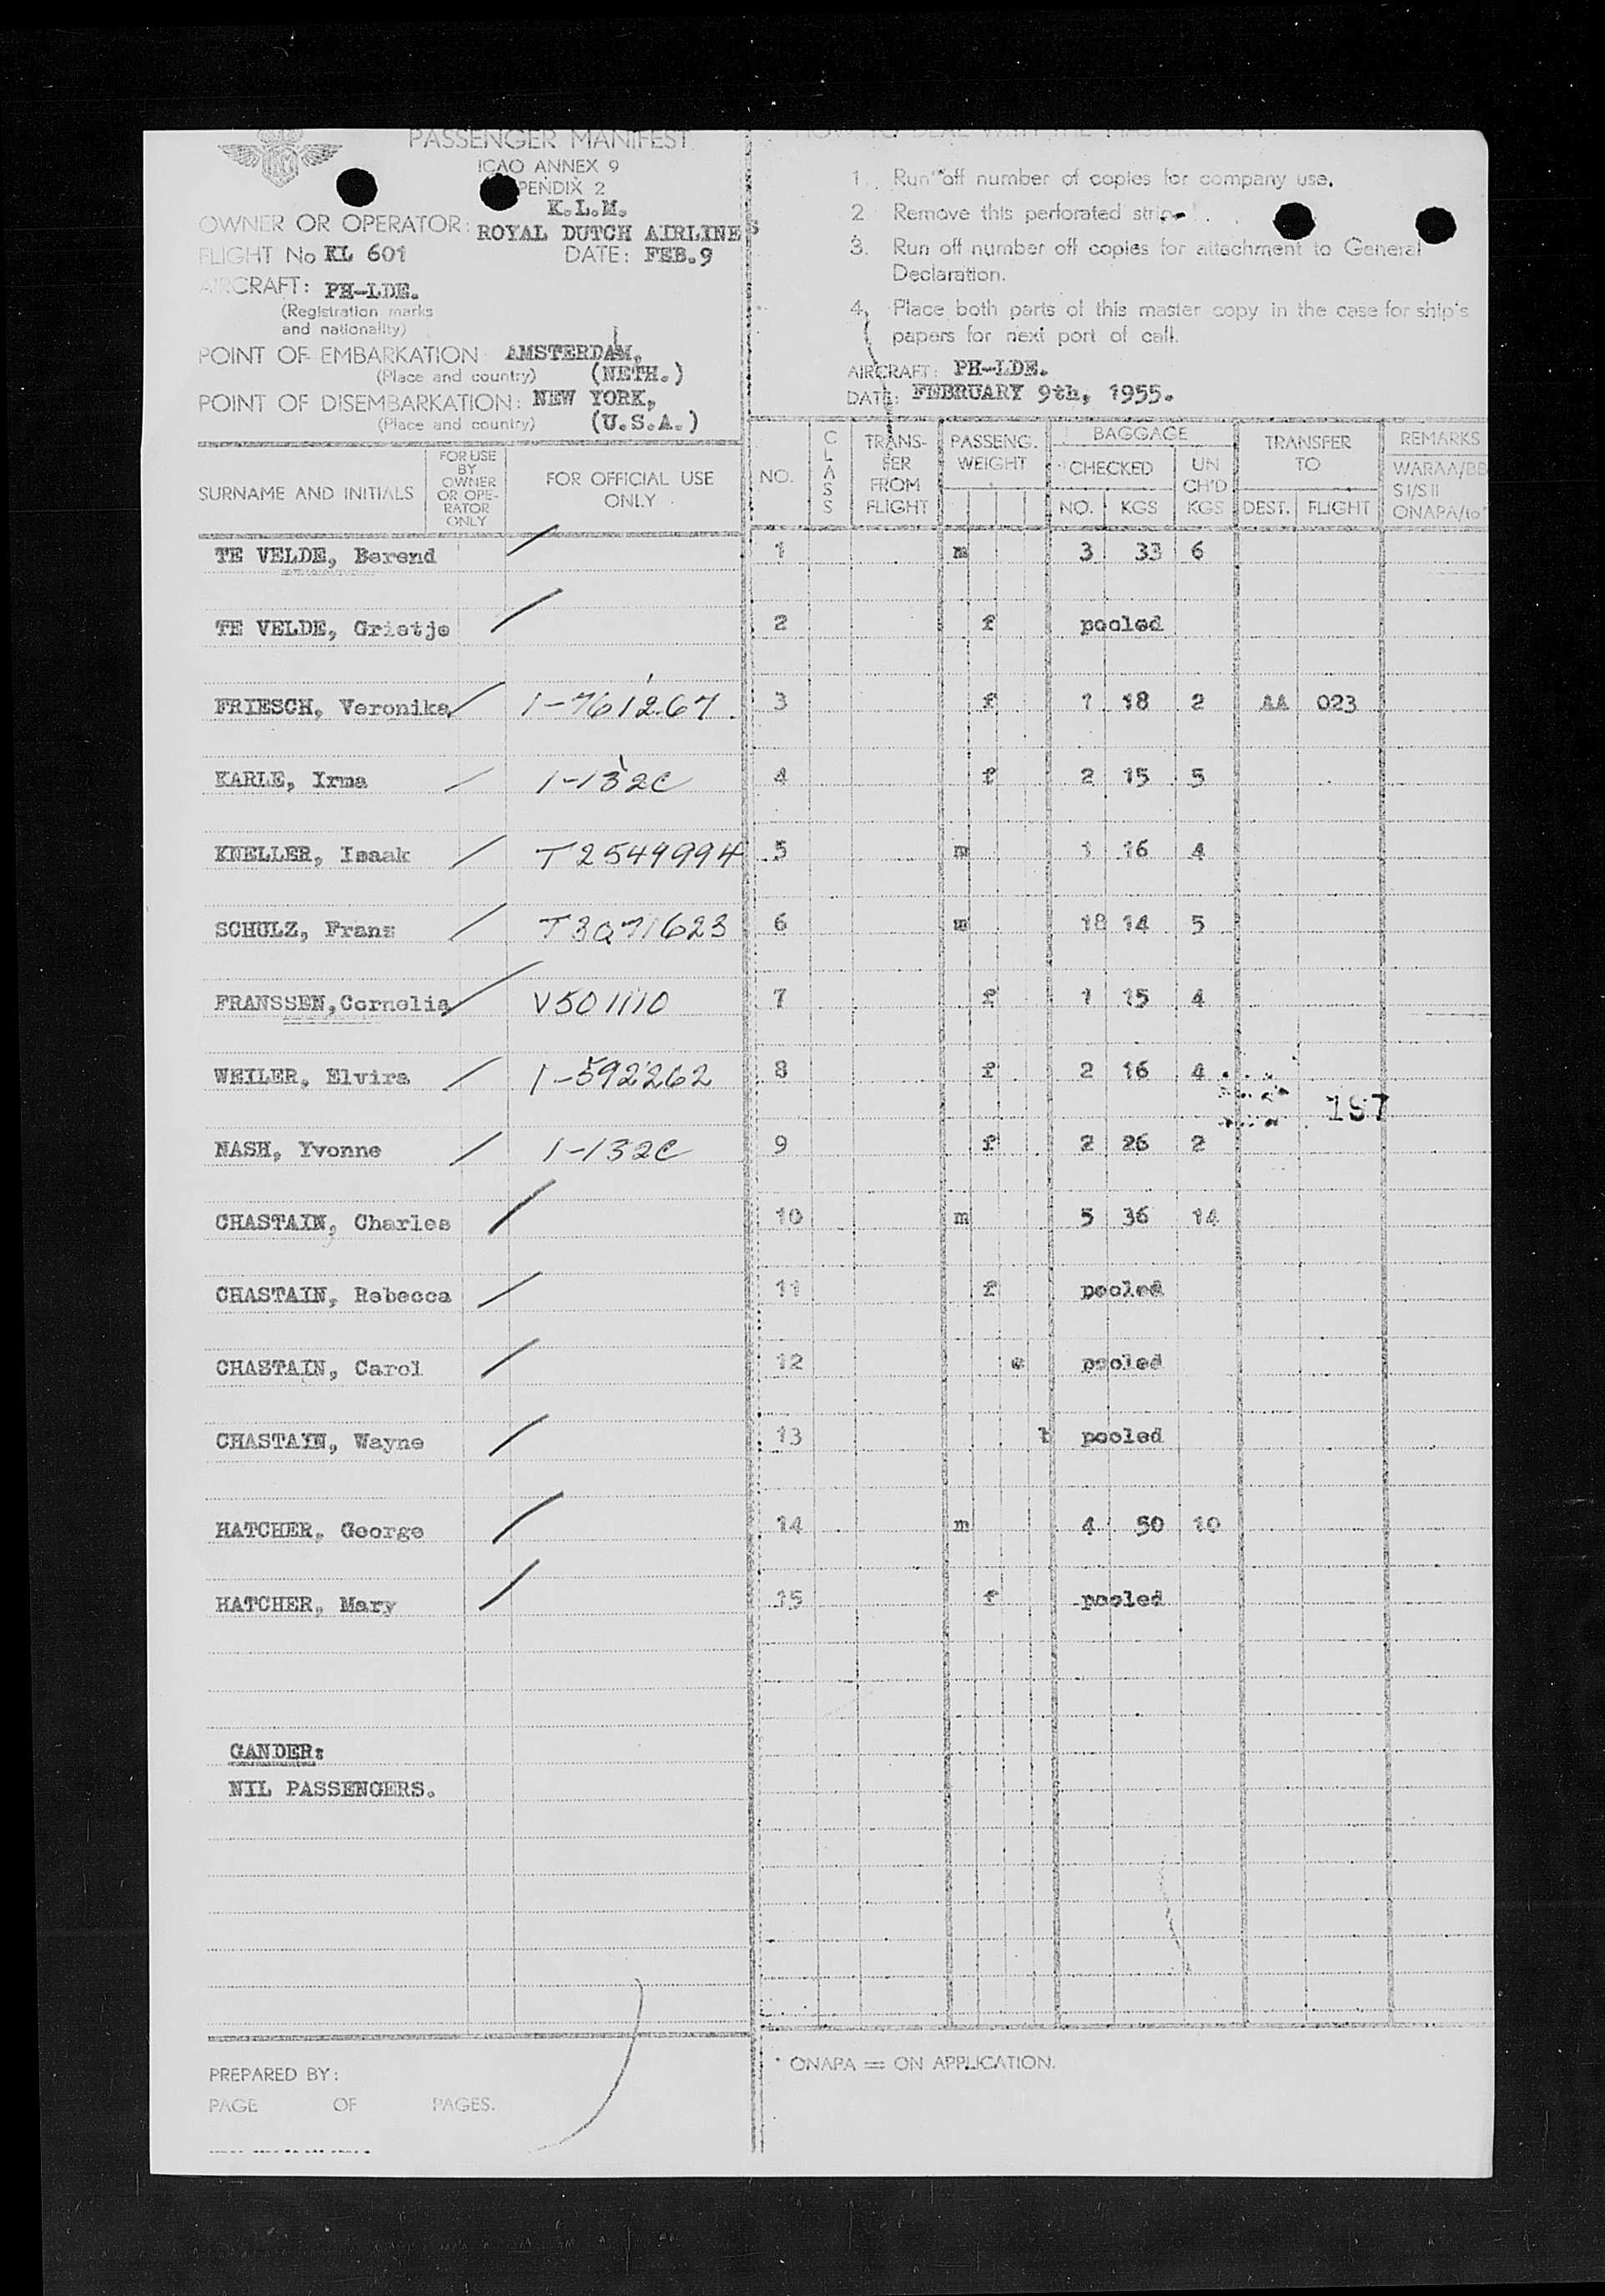 PASSENGER MANIFEST
ICAO ANNEX 9
PENDIX 2
K.L.M.
OWNER OR OPERATOR: ROYAL DUTCH AIRLINES
FLIGHT No KL 601 DATE: FEB.9
AIRCRAFT: PH-LDE.
(Registration marks
and nationality)
POINT OF EMBARKATION: AMSTERDAM,
(Place and country) (NETH.)
POINT OF DISEMBARKATION: NEW YORK,
(Place and country) (U.S.A.)
HOW TO DEAL WITH THE MASTER COPY:
1. Run off number of copies for company use.
2. Remove this perforated strip.
3. Run off number off copies for attachment to General
Declaration.
4. Place both parts of this master copy in the case for ship's
papers for next port of call.
AIRCRAFT: PH-LDE.
DATE: FEBRUARY 9th, 1955.
SURNAME AND INITIALS FOR USE BY OWNER OR OPE-RATOR ONLY FOR OFFICIAL USE ONLY NO. CLASS TRANS-FER FROM FLIGHT PASSENG. WEIGHT BAGGAGE CHECKED NO. KGS UN CH'D KGS TRANSFER TO DEST. FLIGHT REMARKS WARAA/BB S I/S II ONAPA/to
TE VELDE, Berend 1 m 3 33 6
TE VELDE, Grietje 2 f pooled
FRIESCH, Veronika 1-761267 3 f 1 18 2 AA 023
KARLE, Irma 1-132C 4 f 2 15 5
KNELLER, Isaak T2549994 5 m 1 16 4
SCHULZ, Franz T3071623 6 m 18 14 5
FRANSSEN,Cornelia V501110 7 f 1 15 4
WEILER, Elvira 1-592262 8 f 2 16 4
197
NASH, Yvonne 1-132C 9 f 2 26 2
CHASTAIN, Charles 10 m 5 36 14
CHASTAIN, Rebecca 11 f pooled
CHASTAIN, Carol 12 c pooled
CHASTAIN, Wayne 13 b pooled
HATCHER, George 14 m 4 50 10
HATCHER, Mary 15 f pooled
GANDER:
NIL PASSENGERS.
PREPARED BY:
PAGE OF PAGES.
* ONAPA = ON APPLICATION.